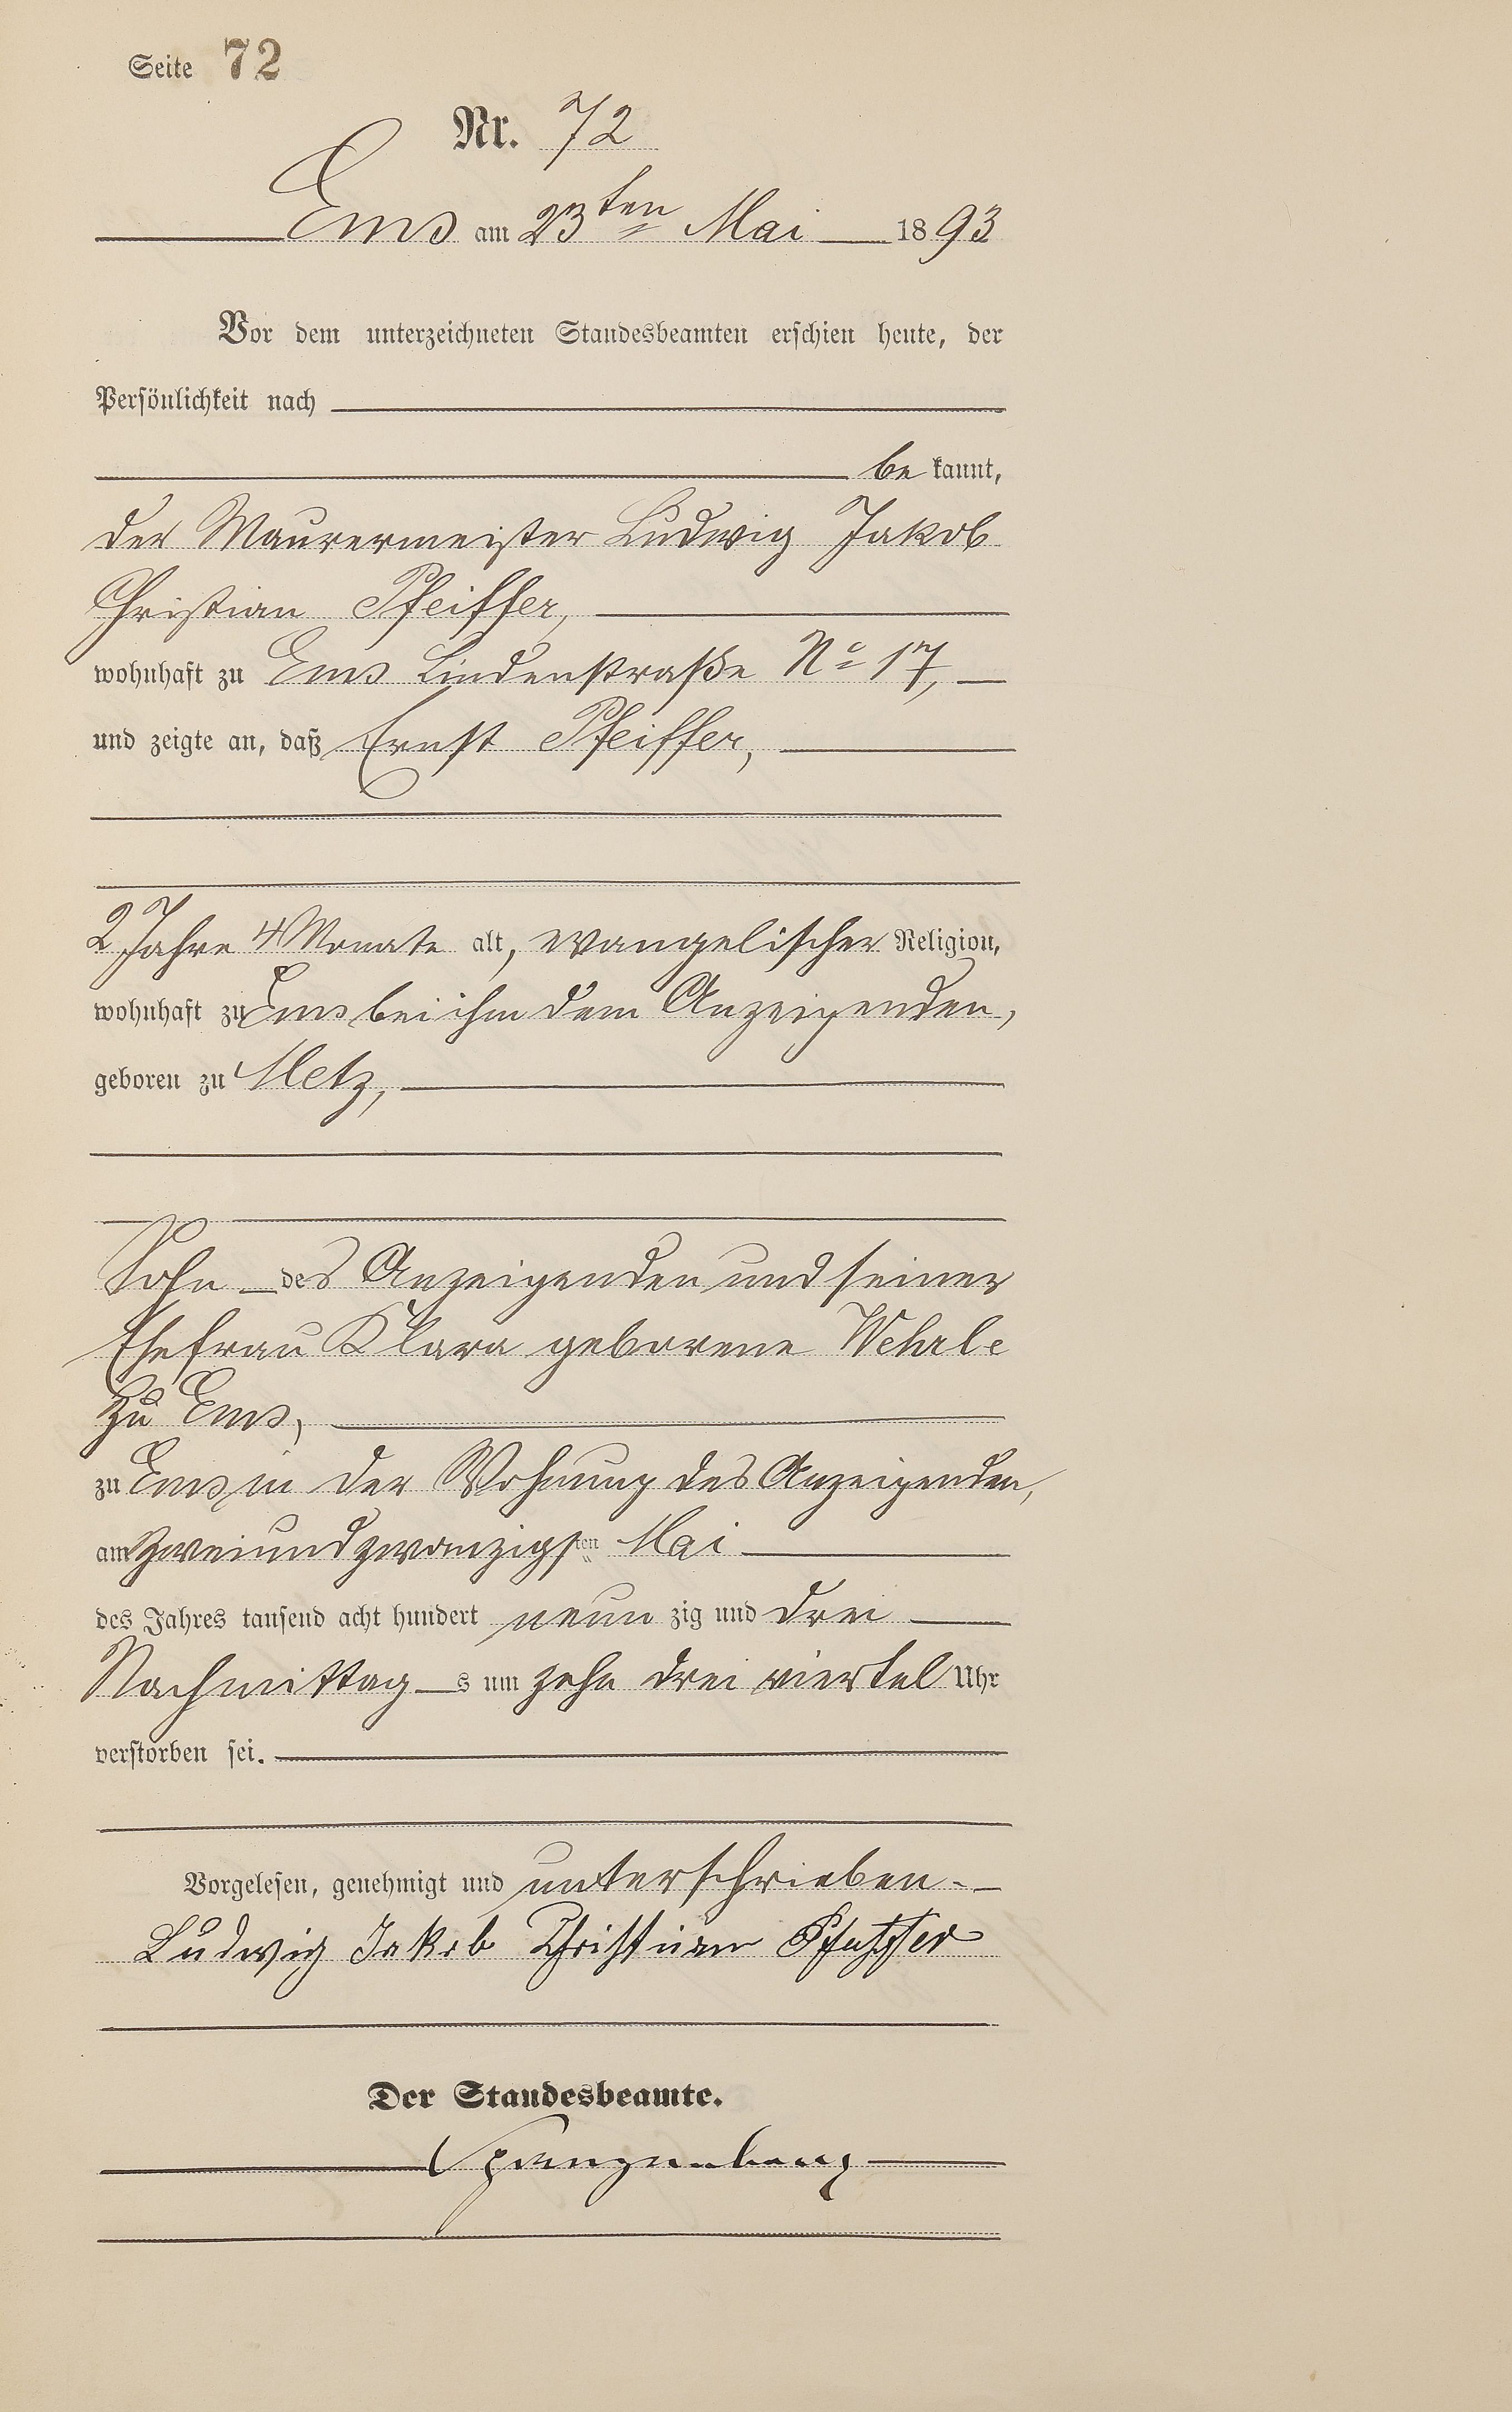 Seite 72
Nr. 72
Ems am 23ten Mai 1893
Vor dem unterzeichneten Standesbeamten erschien heute, der
Persönlichkeit nach
be kannt,
der Maurermeister Ludwig Jakob
Christian Pfeiffer,
wohnhaft zu Ems Lindenstraße No 17,
und zeigte an, daß Ernst Pfeiffer,
2 Jahre 4 Monate alt, evangelischer Religion,
wohnhaft zu Ems bei ihm dem Anzeigenden,
geboren zu Metz,
Sohn des Anzeigenden und seiner
Ehefrau Klara geborene Wehrle
zu Ems,
zu Ems in der Wohnung des Anzeigenden,
am zweiundzwanzigsten Mai
des Jahres tausend acht hundert neun zig und drei
Nachmittag s um zehn drei viertel Uhr
verstorben sei.
Vorgelesen, genehmigt und unterschrieben.
Ludwig Jakob Christian Pfeiffer
Der Standesbeamte.
Spangenberg